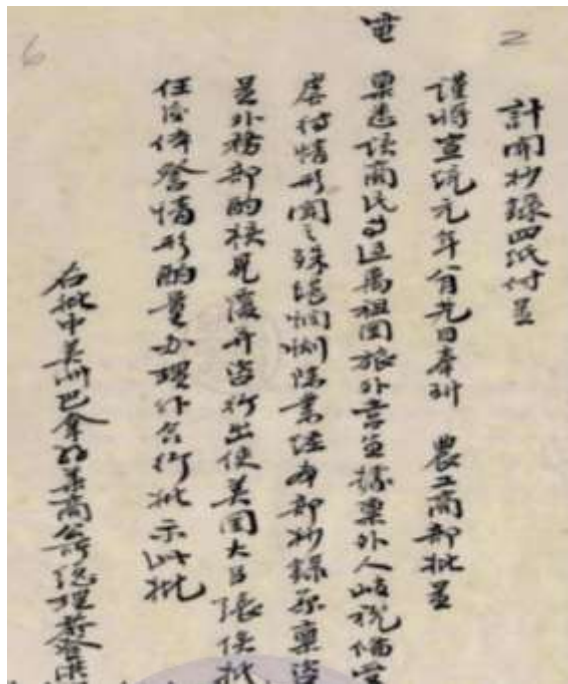 計開抄錄四紙付呈
謹將宣統元年八月九日奉到 農工商部批呈
稟悉該商民等迢隔祖國旅外營生據稟外人歧視備嘗
虐待情形聞之殊堪憫惻除業經本部抄錄原稟咨
呈外務部酌核見復并咨行出使美國大臣張俟批
任後體察情形酌量辦理外合行批示此批
右批中美洲巴拿馬華商公所總理
2
6